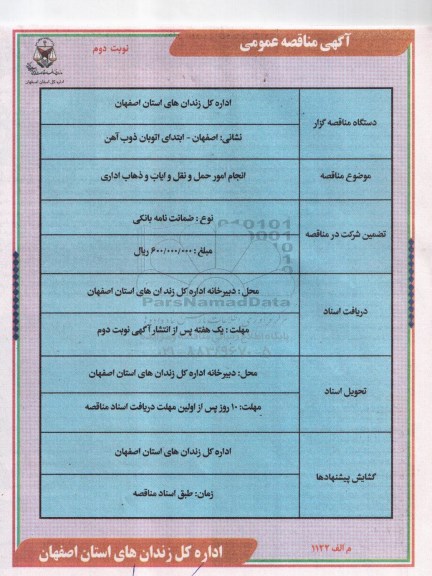 آگهی مناقصه عمومی
نوبت دوم
اداره کل زندان های استان اصفهان
دستگاه مناقصه گزار
نشانی: اصفهان - ابتدای اتوبان ذوب آهن
موضوع مناقصه
انجام امور حمل و نقل و ایاب و ذهاب اداری
تضمین شرکت در مناقصه
نوع : ضمانت نامه بانکی
مبلغ : ۶۰۰/۰۰۰/۰۰۰ ریال
دریافت اسناد
محل : دبیرخانه اداره کل زندان های استان اصفهان
مهلت : یک هفته پس از انتشار آگهی نوبت دوم
ParsNamadData
تحویل اسناد
محل: دبیرخانه اداره کل زندان های استان اصفهان
مهلت: ۱۰ روز پس از اولین مهلت دریافت اسناد مناقصه
گشایش پیشنهادها
اداره کل زندان های استان اصفهان
زمان: طبق اسناد مناقصه
م الف ۱۱۲۲
اداره کل زندان های استان اصفهان